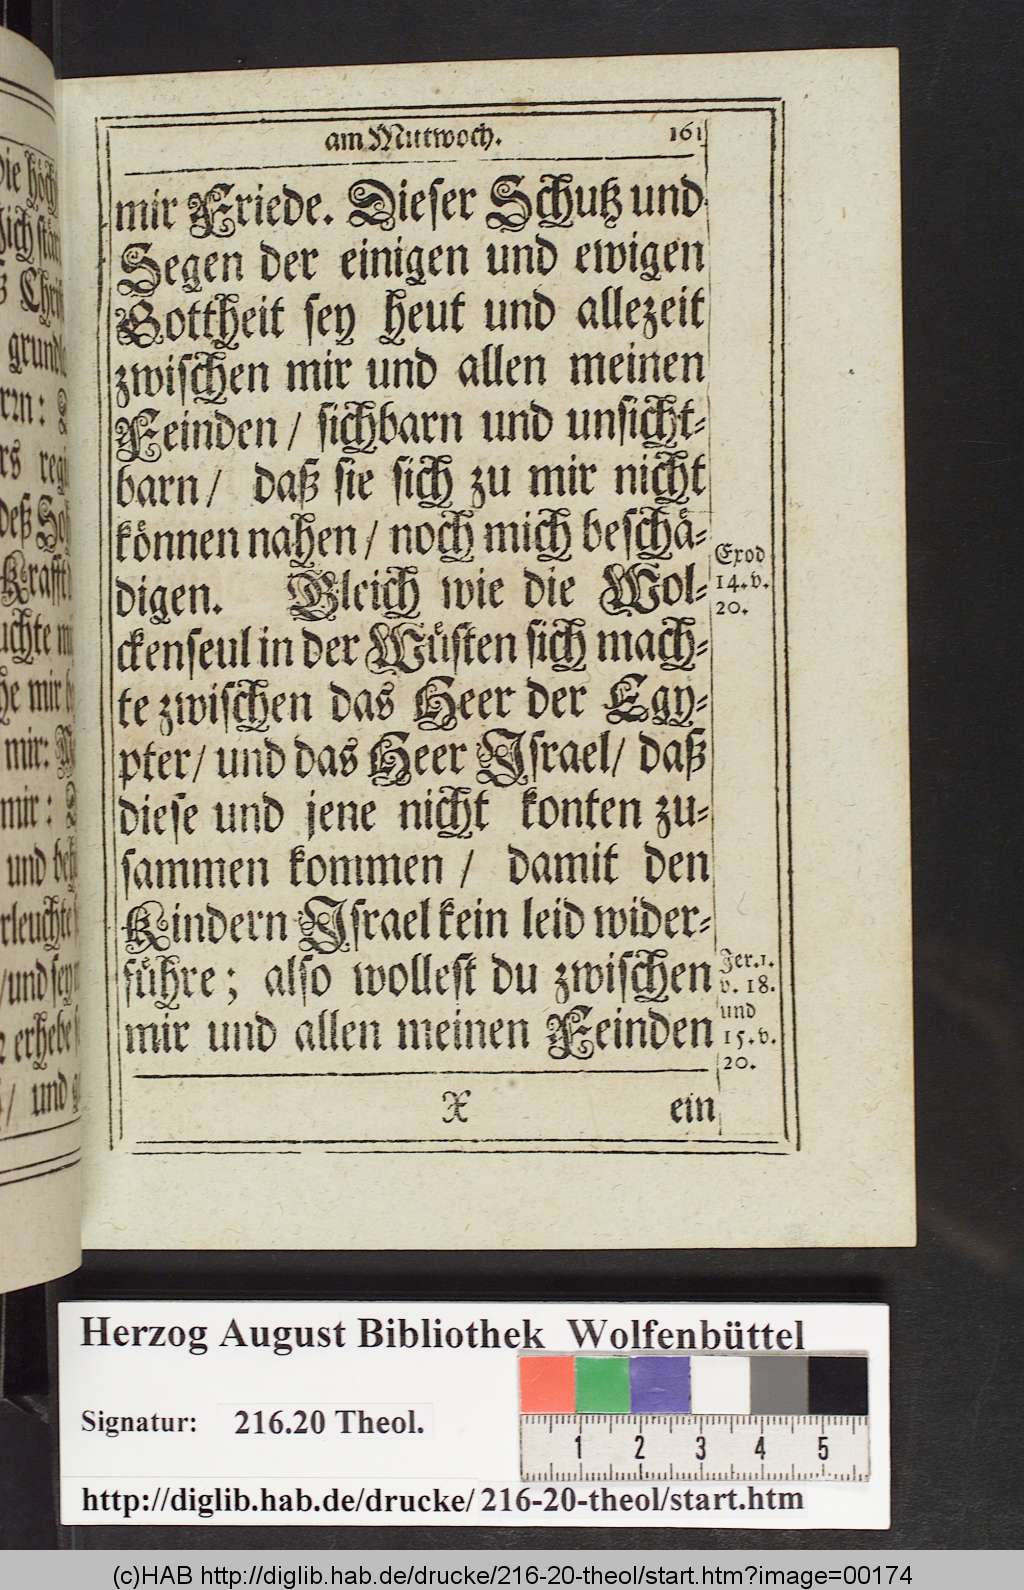 am Mittwoch. 161
mir Friede. Dieser Schutz und
Segen der einigen und ewigen
Gottheit sey heut und allezeit
zwischen mir und allen meinen
Feinden / sichbarn und unsicht-
barn / daß sie sich zu mir nicht
können nahen / noch mich beschä-
digen. Gleich wie die Wol-
ckenseul in der Wüsten sich mach-
te zwischen das Heer der Egy-
pter / und das Heer Israel / daß
diese und jene nicht konten zu-
sammen kommen / damit den
Kindern Israel kein leid wider-
führe; also wollest du zwischen
mir und allen meinen Feinden
X ein
Exod
14. v.
20.
Jer. 1.
v. 18.
und
15. v.
20.
Herzog August Bibliothek Wolfenbüttel
Signatur: 216.20 Theol.
1 2 3 4 5
http://diglib.hab.de/drucke/216-20-theol/start.htm
(c)HAB http://diglib.hab.de/drucke/216-20-theol/start.htm?image=00174